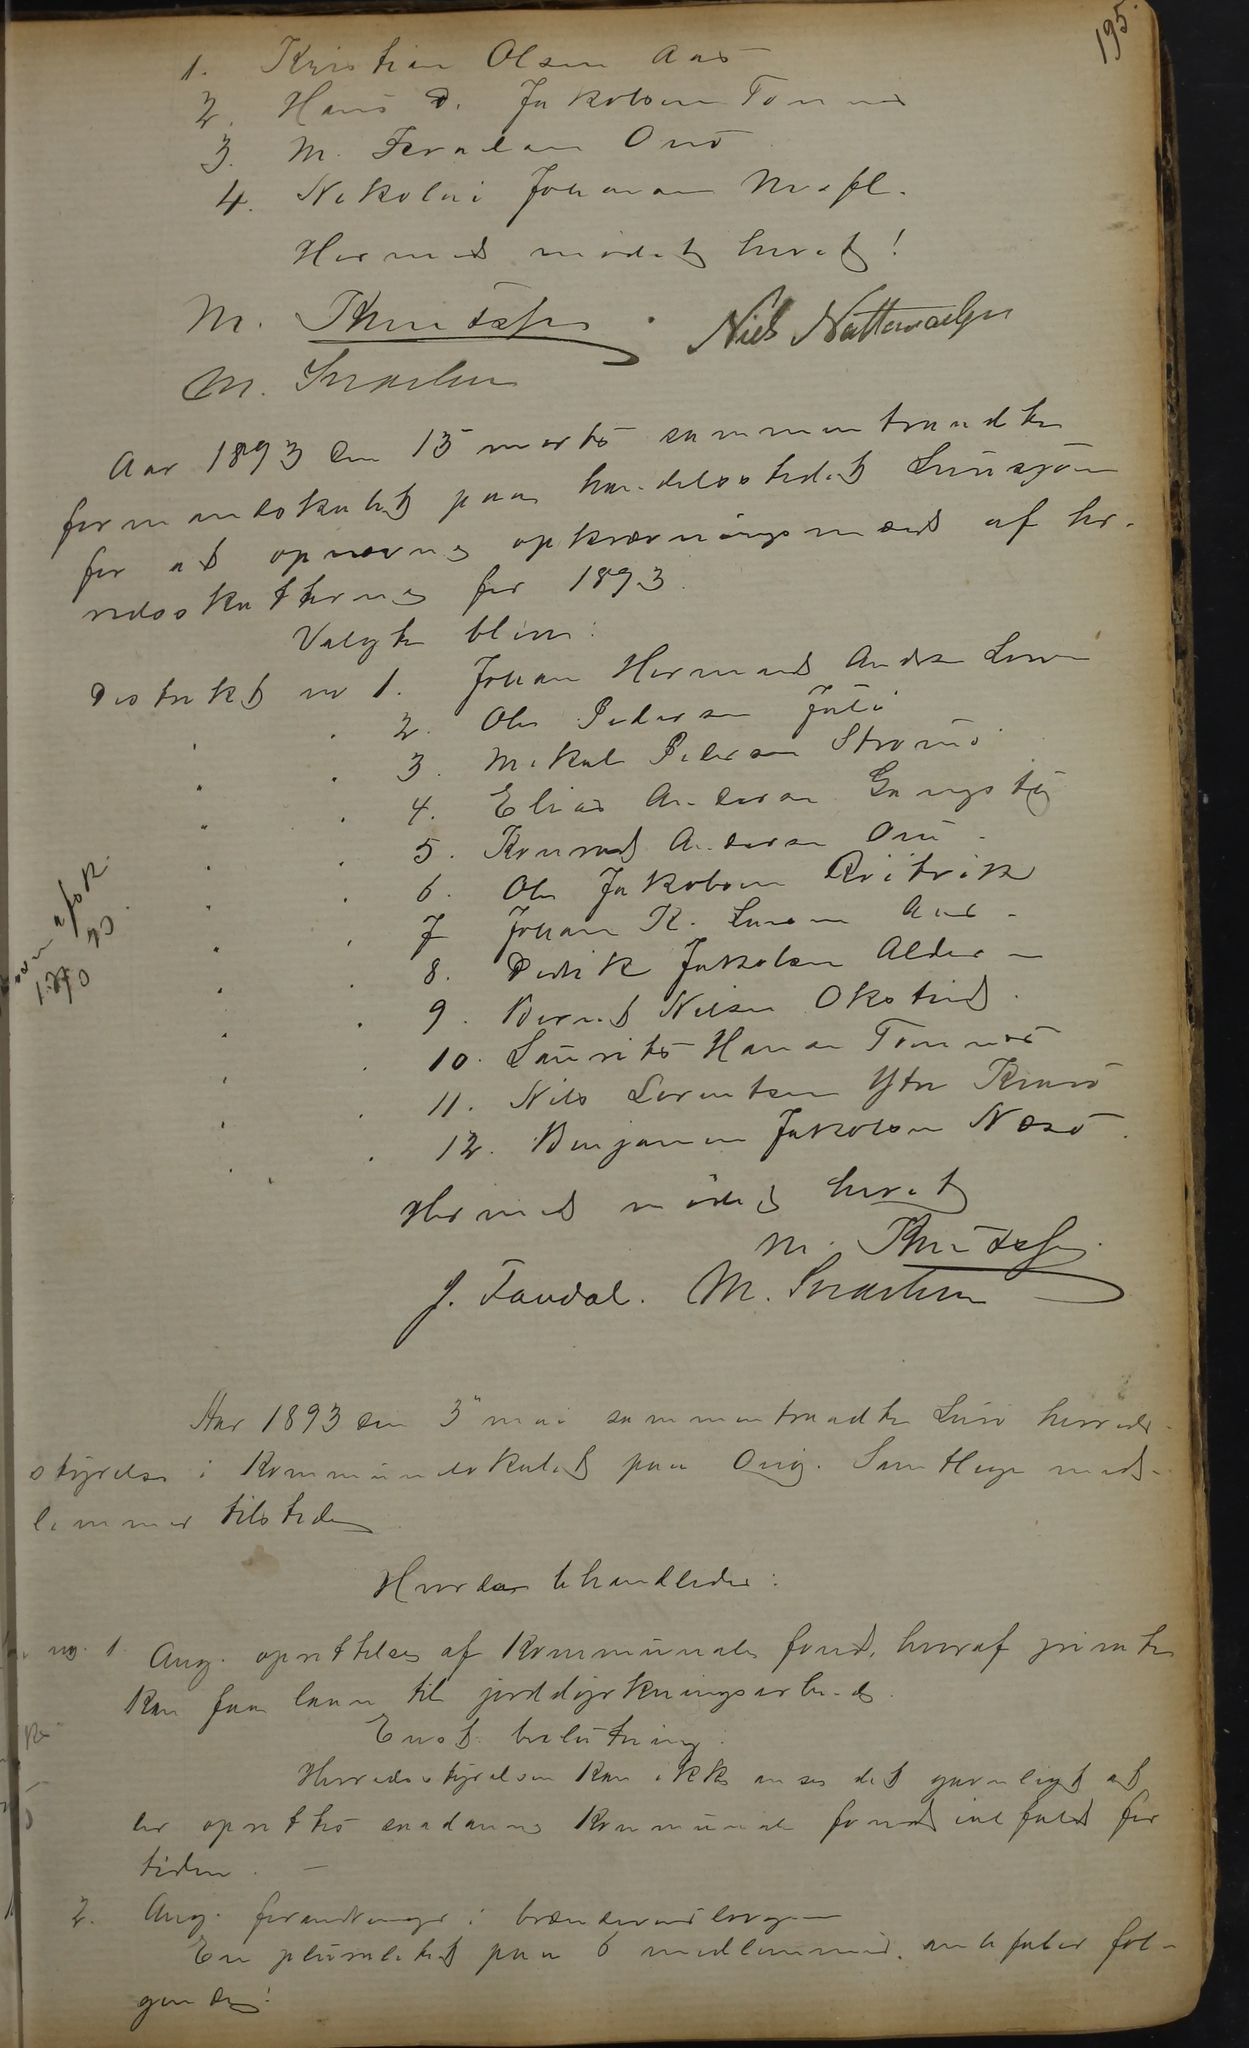 195.
1. Kristian Olsen Aas
2. Hans D. Jakobsen Tonnes
3. M. Onö
4. Nikolai Johansen
Hermed mödet hævet!
M. Knutzen. Niels Nattevaelgn
M. Ivarsen
Aar 1893 den 15 marts sammentraadte
formandskabet paa handelsstedet Lurusjöen
for at opnævne opkrævningsmænd af her-
redsskatterne for 1893.
Valgte blev:
Distrikt no 1. Johan Hermand Andersen Lurö
2. Ole Pedersen
3. Mikal Pedersen Strömö
4. Elias Andersen Gangstö
5. Konrad Andersen Onö
6. Ole Jakobsen Kvitvik
7 Johan K. Larsen Aas
8. Didrik Jakobsen Alderen
9. Bernt Nilsen Okstind.
10. Laurits Hansen Tonnes
11. Nils Lorentsen Ytre Kvarö
12. Benjamin Jakobsen Næsö.
Hermed mödet hævet
M. Knutzen
J. Faudal. M. Ivarsen
Aar 1893 den 3" mai sammentraadte Lurö herreds-
styrelse i Kommunelokalet paa Onö. Samtlige med-
lemmer tilstede
Hvorda behandledes:
no. 1. Ang. oprettelse af Kommunale fond, hvoraf private
kan faa laan til jorddyrkningsarbeide.
Enst. beslutning:
Herredsstyrelsen kan ikke anse det gavnligt at
der oprettes saadanne Kommunale fond ialfald for
tiden. —
2. Ang. forandringer i brændevinsloven
En pluralitet paa 6 medlemmer anbefaler föl-
gende: